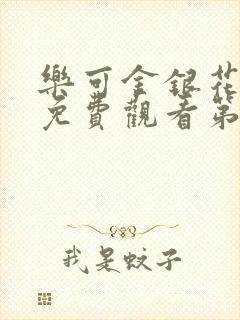 樂可金銀花
免費觀看第
我是蚊子